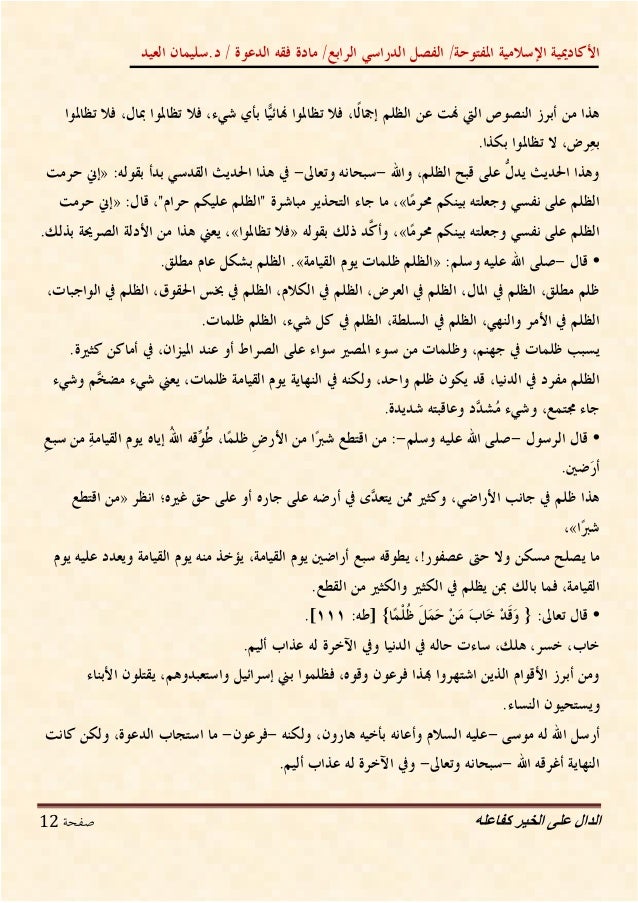 الأكاديمية الإسلامية المفتوحة/ الفصل الدراسي الرابع/ مادة فقه الدعوة / د.سليمان العيد
هذا من أبرز النصوص التي نهت عن الظلم إجمالًا، فلا تظالموا نهائيًّا بأي شيء، فلا تظالموا بمال، فلا تظالموا
بعِرض، لا تظالموا بكذا.
وهذا الحديث يدلُّ على قبح الظلم، والله –سبحانه وتعالى– في هذا الحديث القدسي بدأ بقوله: «إني حرمت
الظلم على نفسي وجعلته بينكم محرمًا»، ما جاء التحذير مباشرة "الظلم عليكم حرام"، قال: «إني حرمت
الظلم على نفسي وجعلته بينكم محرمًا»، وأكَّد ذلك بقوله «فلا تظالموا»، يعني هذا من الأدلة الصريحة بذلك.
• قال –صلى الله عليه وسلم: «الظلم ظلمات يوم القيامة». الظلم بشكل عام مطلق.
ظلم مطلق، الظلم في المال، الظلم في العرض، الظلم في الكلام، الظلم في بخْس الحقوق، الظلم في الواجبات،
الظلم في الأمر والنهي، الظلم في السلطة، الظلم في كل شيء، الظلم ظلمات.
يسبب ظلمات في جهنم، وظلمات من سوء المصير سواء على الصراط أو عند الميزان، في أماكن كثيرة.
الظلم مفرد في الدنيا، قد يكون ظلم واحد، ولكنه في النهاية يوم القيامة ظلمات، يعني شيء مضخَّم وشيء
جاء مجتمع، وشيء مُشدَّد وعاقبته شديدة.
• قال الرسول –صلى الله عليه وسلم–: من اقتطع شبرًا من الأرضِ ظلمًا، طُوِّقه اللهُ إياه يوم القيامةِ من سبعِ
أرَضين.
هذا ظلم في جانب الأراضي، وكثير ممن يتعدَّى في أرضه على جاره أو على حق غيره؛ انظر «من اقتطع
شبرًا»،
ما يصلح مسكن ولا حتى عصفور!، يطوقه سبع أراضين يوم القيامة، يؤخذ منه يوم القيامة ويعدد عليه يوم
القيامة، فما بالك بمن يظلم في الكثير والكثير من القطع.
• قال تعالى: { وَقَدْ خَابَ مَنْ حَمَلَ ظُلْمًا} [طه: ١١١].
خاب، خسر، هلك، ساءت حاله في الدنيا وفي الآخرة له عذاب أليم.
ومن أبرز الأقوام الذين اشتهروا بهذا فرعون وقوه، فظلموا بني إسرائيل واستعبدوهم، يقتلون الأبناء
ويستحيون النساء.
أرسل الله له موسى –عليه السلام وأعانه بأخيه هارون، ولكنه –فرعون– ما استجاب الدعوة، ولكن كانت
النهاية أغرقه الله –سبحانه وتعالى– وفي الآخرة له عذاب أليم.
الدال على الخير كفاعله
صفحة 12